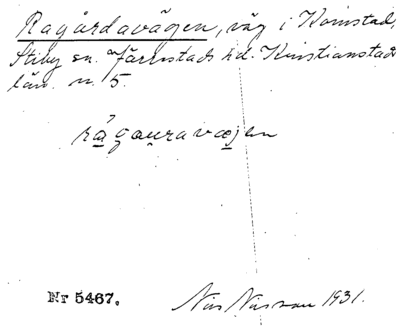 Ragårdavägen, väg i Komstad,
Stiby sn. Järrestads hd. Kristianstads
län. n. 5.
rågauravæjen
Nr 5467.
Nils Nilsson 1931.